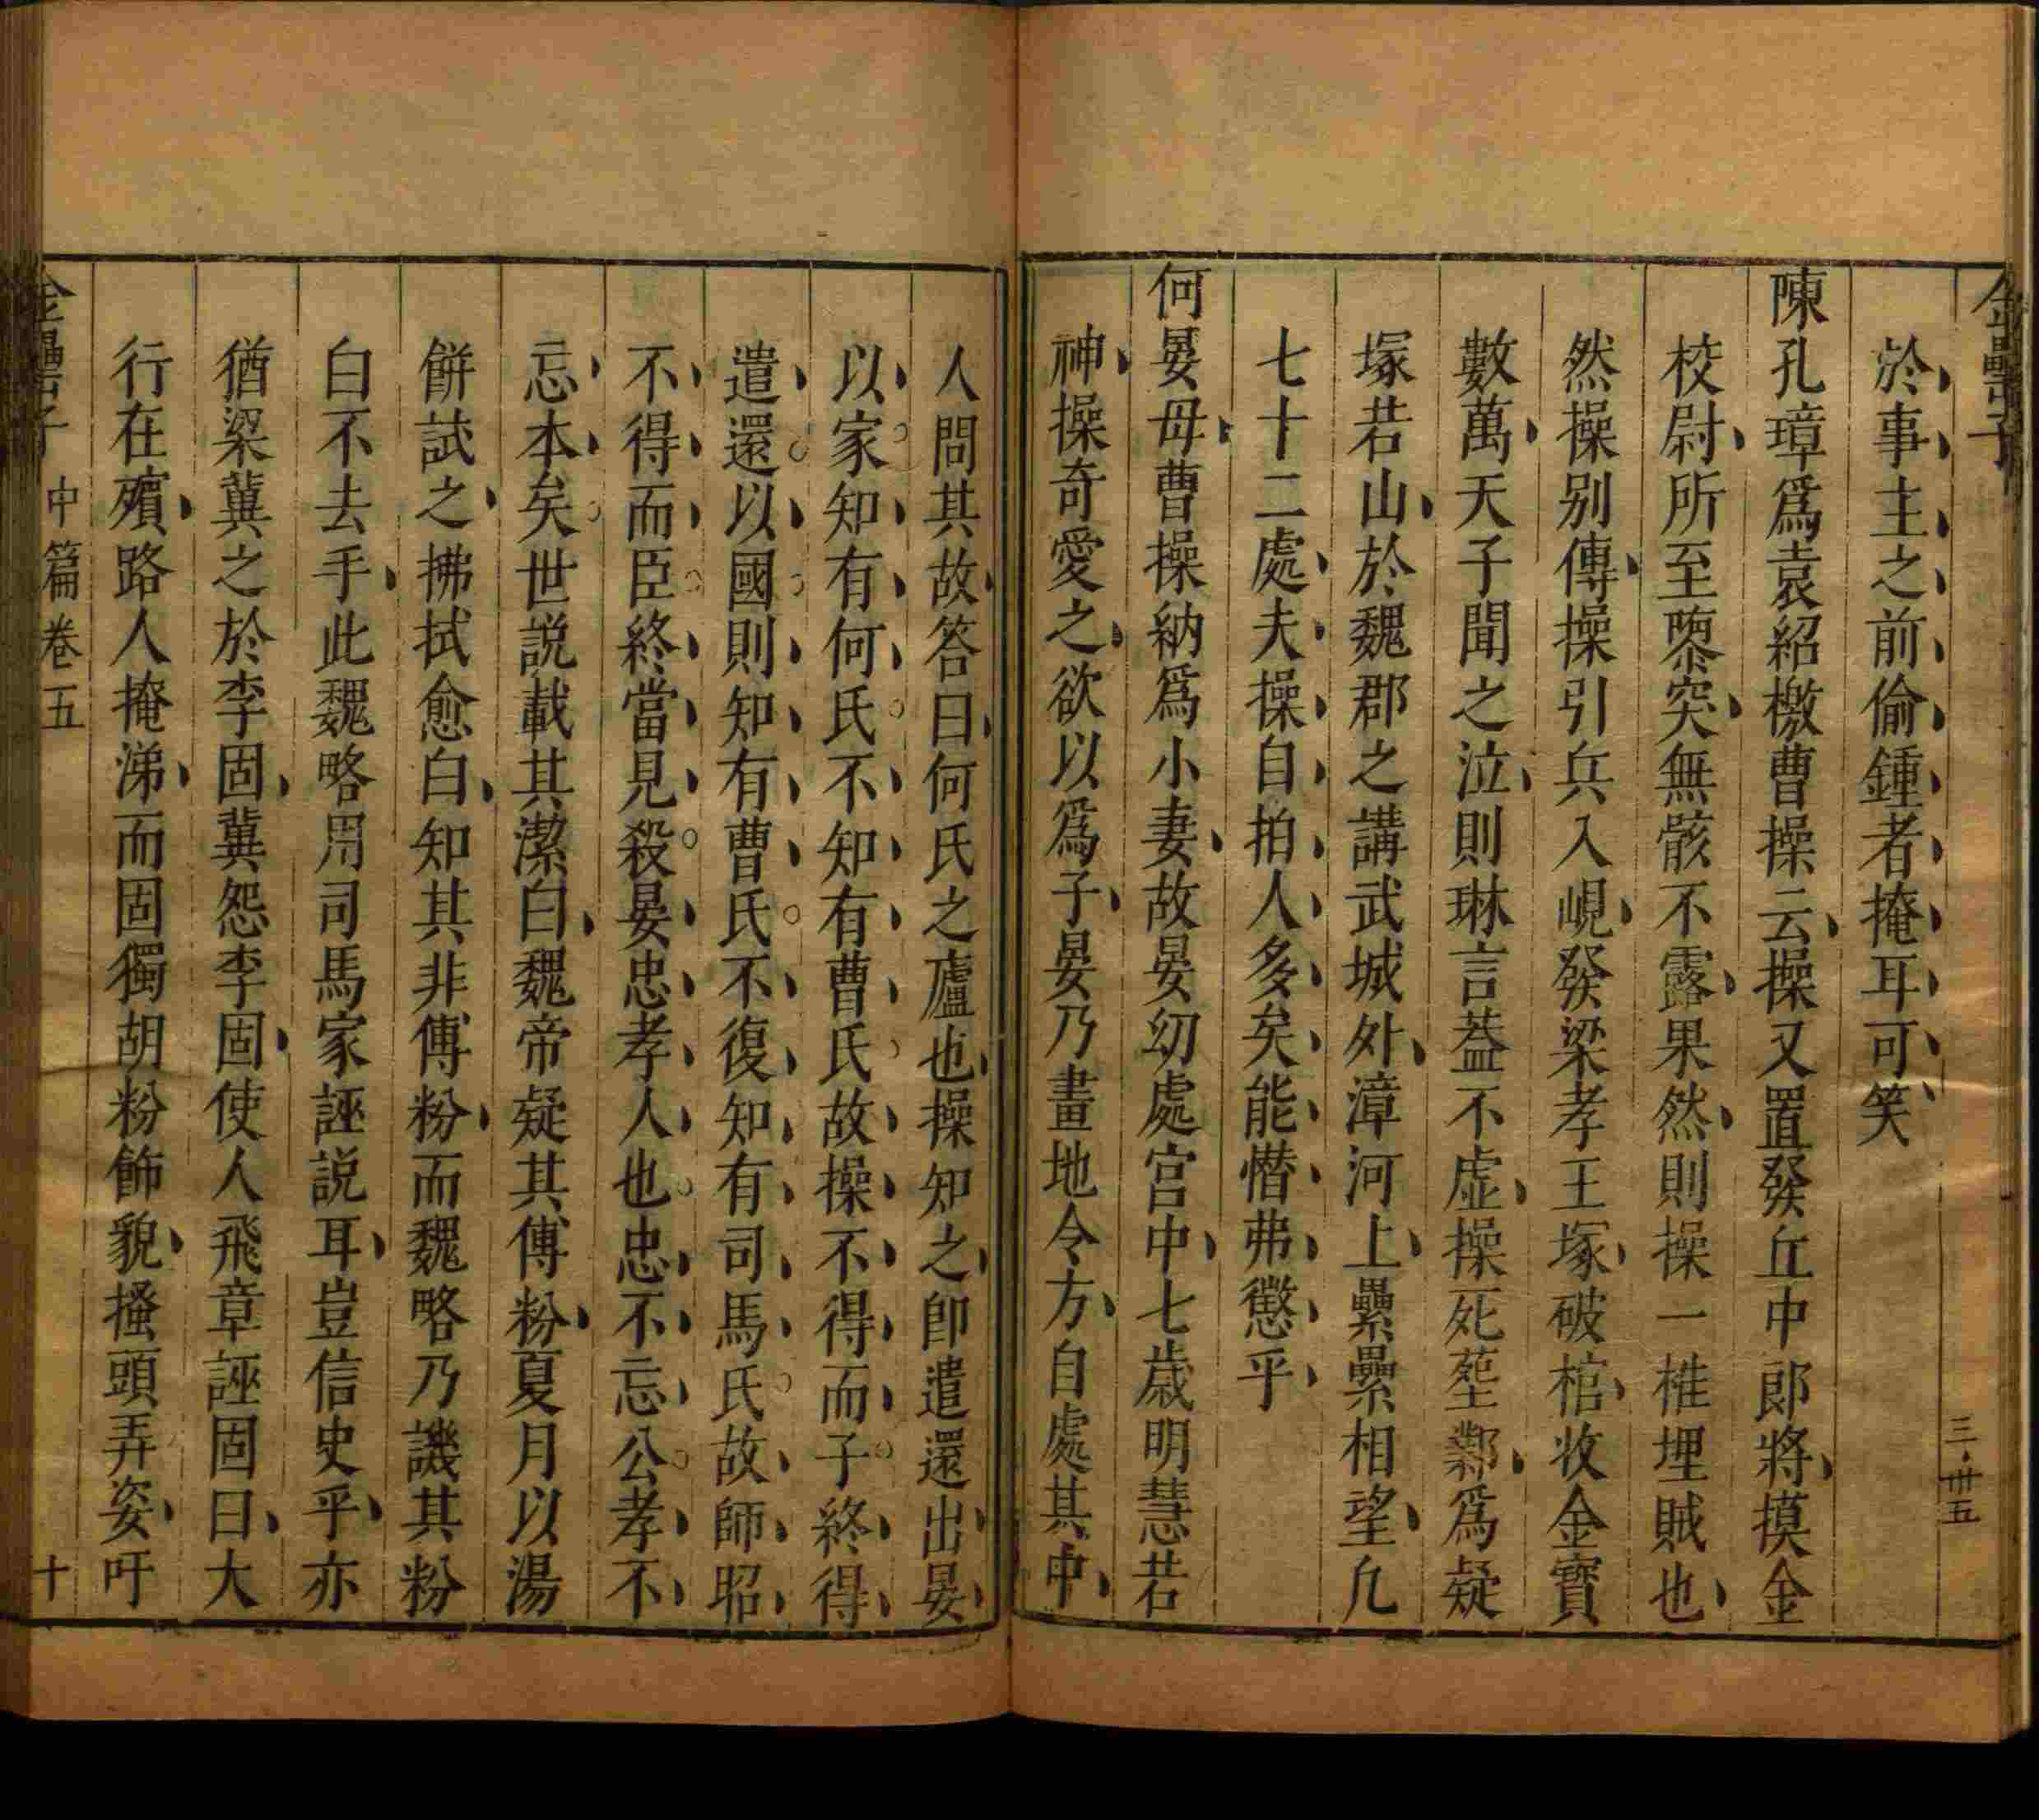 金罍子
三卌五
於事主之前偷鍾者掩耳可笑
陳孔璋爲袁紹檄曹操云操又置發丘中郎將摸金
校尉所至隳突無骸不露果然則操一椎埋賊也
然操别傳操引兵入峴發梁孝王塚破棺收金寶
數萬天子聞之泣則琳言葢不虛操死塟鄴爲疑
塚若山於魏郡之講武城外漳河上纍纍相望凢
七十二處夫操自拍人多矣能憯弗懲乎
何晏母曹操納爲小妻故晏㓜處宫中七歲明慧若
神操奇愛之欲以爲子晏乃畫地令方自處其中
人問其故答曰何氏之廬也操知之卽遣還出晏
以家知有何氏不知有曹氏故操不得而子終得
遣還以國則知有曹氏不復知有司馬氏故師昭
不得而臣終當見殺晏忠孝人也忠不忘公孝不
忘本矣世説載其潔白魏帝疑其傅粉夏月以湯
餅試之拂拭愈白知其非傅粉而魏略乃譏其粉
白不去手此魏略周司馬家誣説耳豈信史乎亦
猶梁冀之於李固冀怨李固使人飛章誣固曰大
行在殯路人掩涕而固獨胡粉飾貌搔頭弄姿吁
金罍子 中篇卷五 十